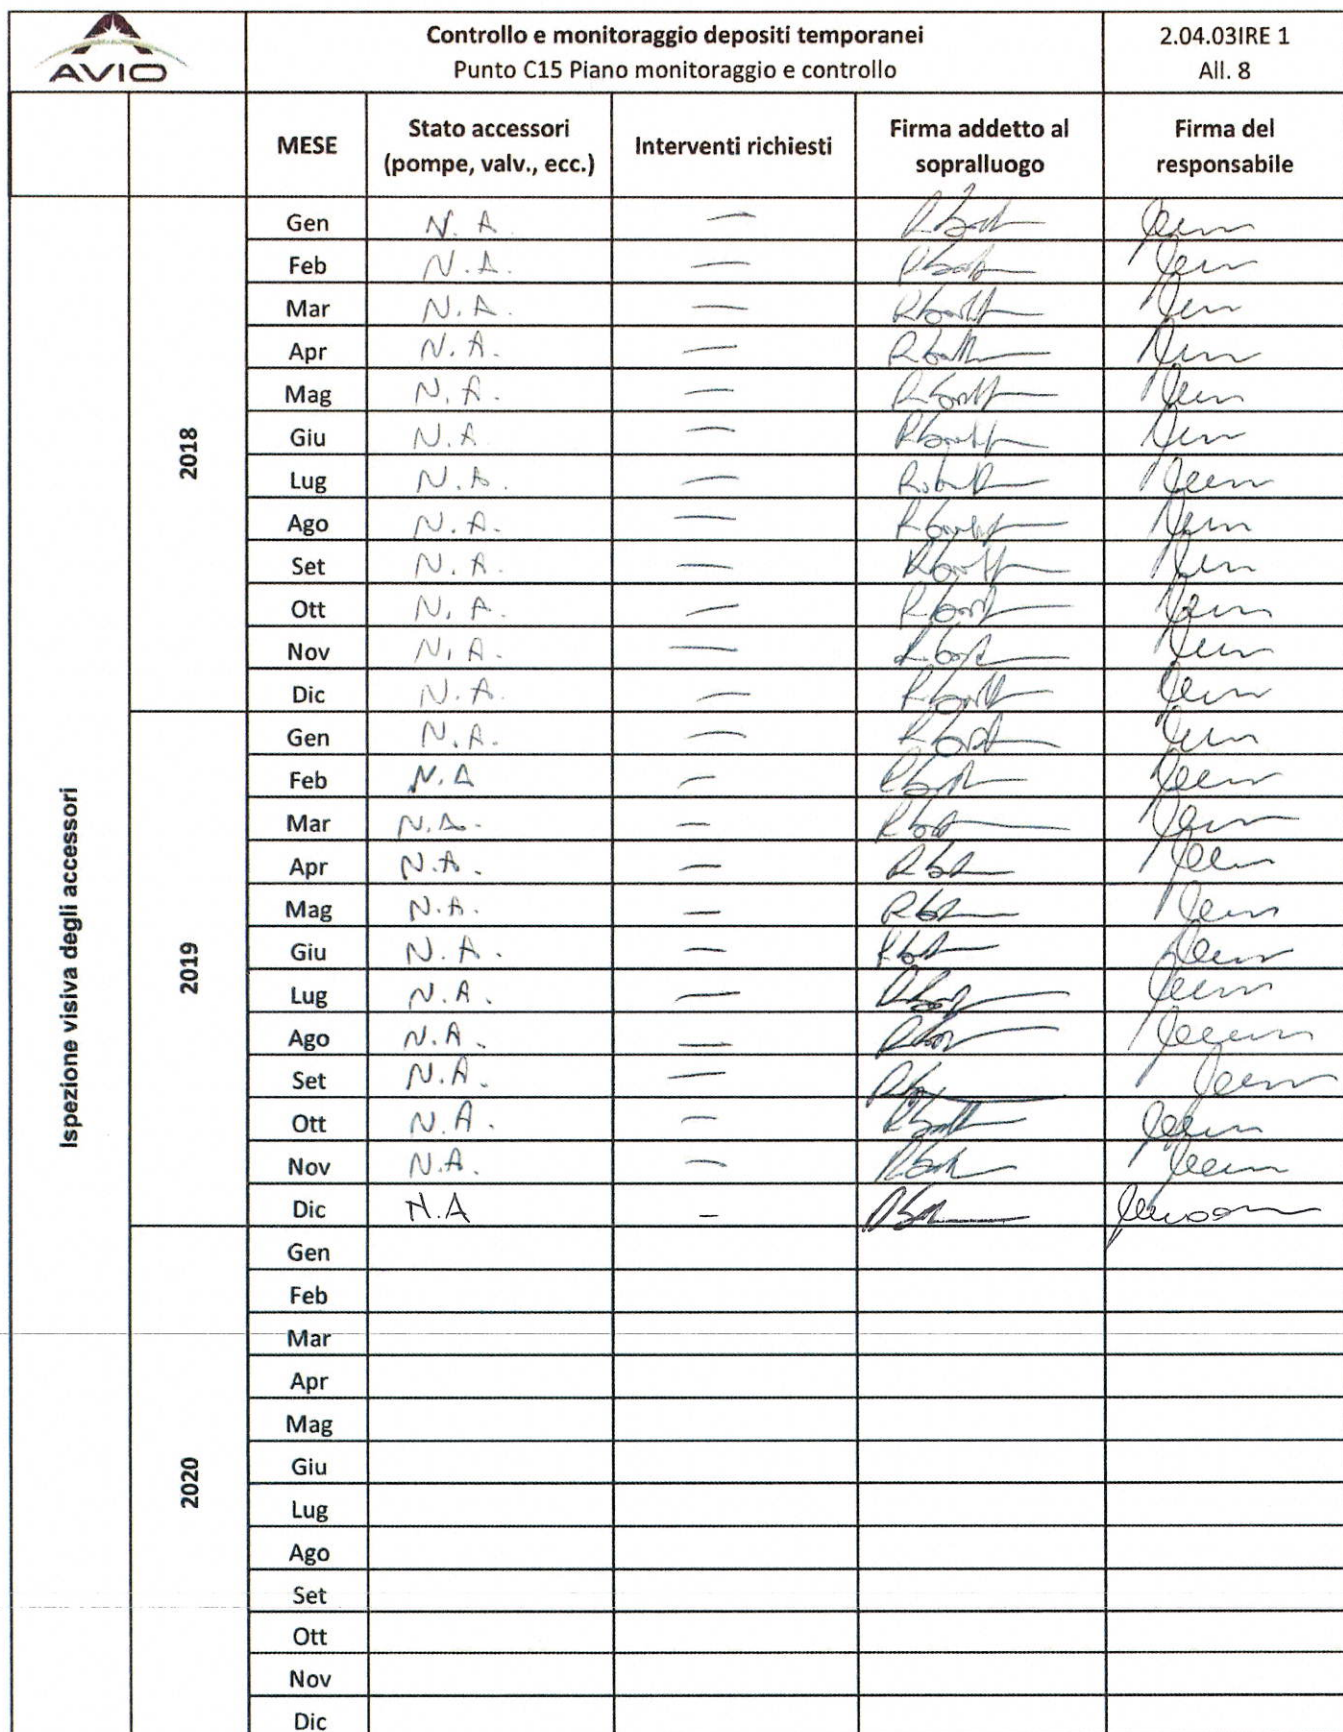 AVIO
Controllo e monitoraggio depositi temporanei
Punto C15 Piano monitoraggio e controllo
2.04.03IRE 1
All. 8
MESE
Stato accessori
(pompe, valv., ecc.)
Interventi richiesti
Firma addetto al
sopralluogo
Firma del
responsabile
Ispezione visiva degli accessori
2018
Gen N. A. —
Feb N.A. —
Mar N.A. —
Apr N.A. —
Mag N.A. —
Giu N.A. —
Lug N.A. —
Ago N.A. —
Set N.A. —
Ott N.A. —
Nov N.A. —
Dic N.A. —
2019
Gen N.A. —
Feb N.A —
Mar N.A. —
Apr N.A. —
Mag N.A. —
Giu N.A. —
Lug N.A. —
Ago N.A. —
Set N.A. —
Ott N.A. —
Nov N.A. —
Dic N.A —
2020
Gen
Feb
Mar
Apr
Mag
Giu
Lug
Ago
Set
Ott
Nov
Dic